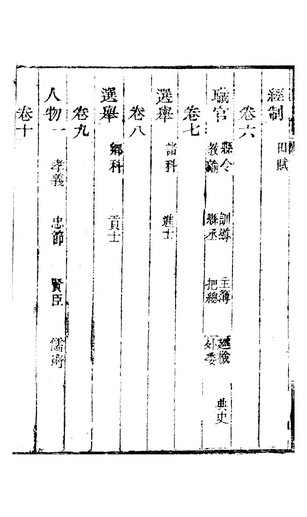 經制 田賦
卷六
職官 縣令 訓導 主簿 典史
教諭 縣丞 把總 外委
卷七
選舉 科 進士
卷八
選舉 鄉科 貢士
卷九
人物一 孝義 忠節 賢臣 儒術
卷十